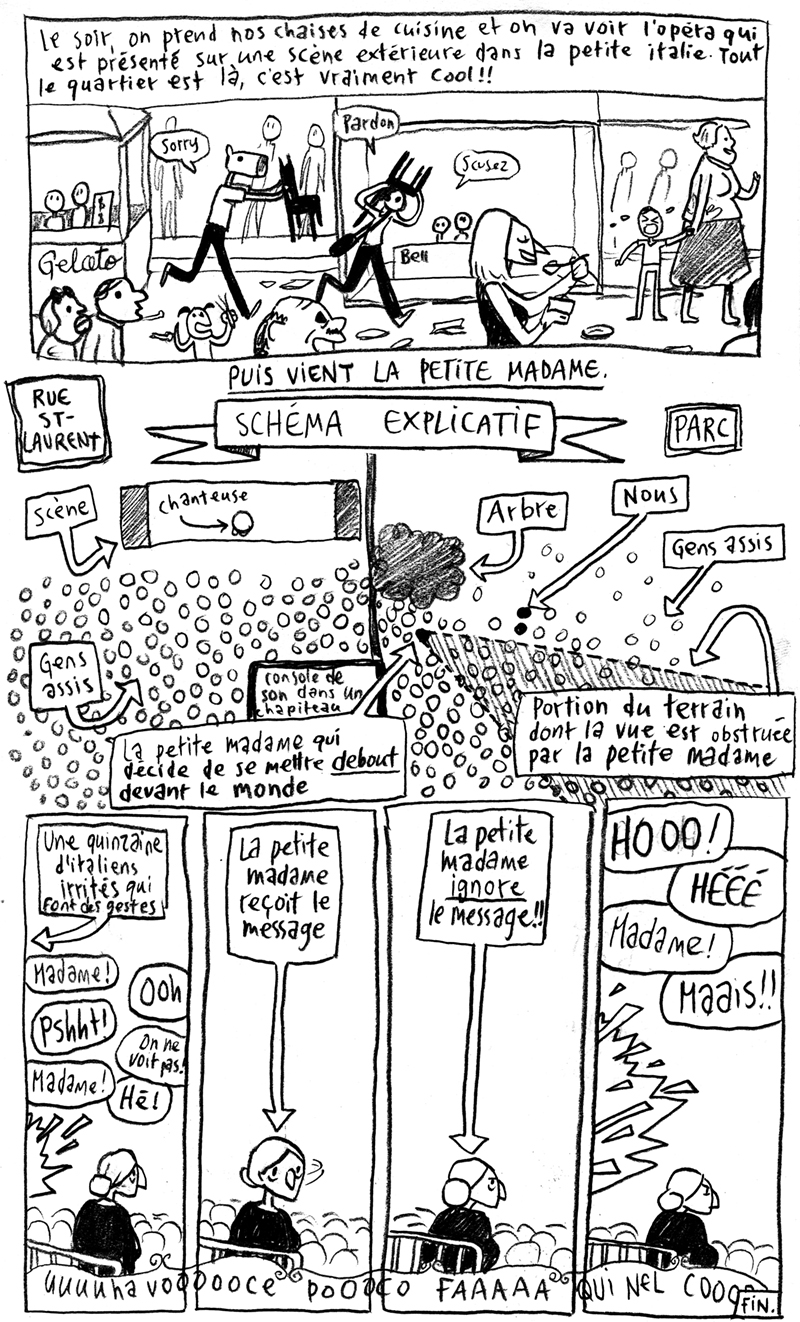 Le soir, on prend nos chaises de cuisine et on va voir l'opéra qui
est présenté sur une scène extérieure dans la petite italie. Tout
le quartier est là, c'est vraiment cool!!
Sorry
Pardon
Scusez
Gelato
Bell
PUIS VIENT LA PETITE MADAME.
RUE
ST-
LAURENT
SCHÉMA EXPLICATIF
PARC
Scène
chanteuse
Arbre
Nous
Gens assis
Gens
assis
console de
son dans un
chapiteau
La petite madame qui
décide de se mettre debout
devant le monde
Portion du terrain
dont la vue est obstruée
par la petite madame
Une quinzaine
d'italiens
irrités qui
font des gestes
Madame!
Ooh
Pshht!
On ne
voit pas!
Madame!
Hé!
La petite
madame
reçoit le
message
La petite
madame
ignore
le message!!
HOOO!
HÉÉÉ
Madame!
Maais!!
UUUUna VOOOOOCE POOOCO FAAAAA QUI NEL COOOO
FIN.